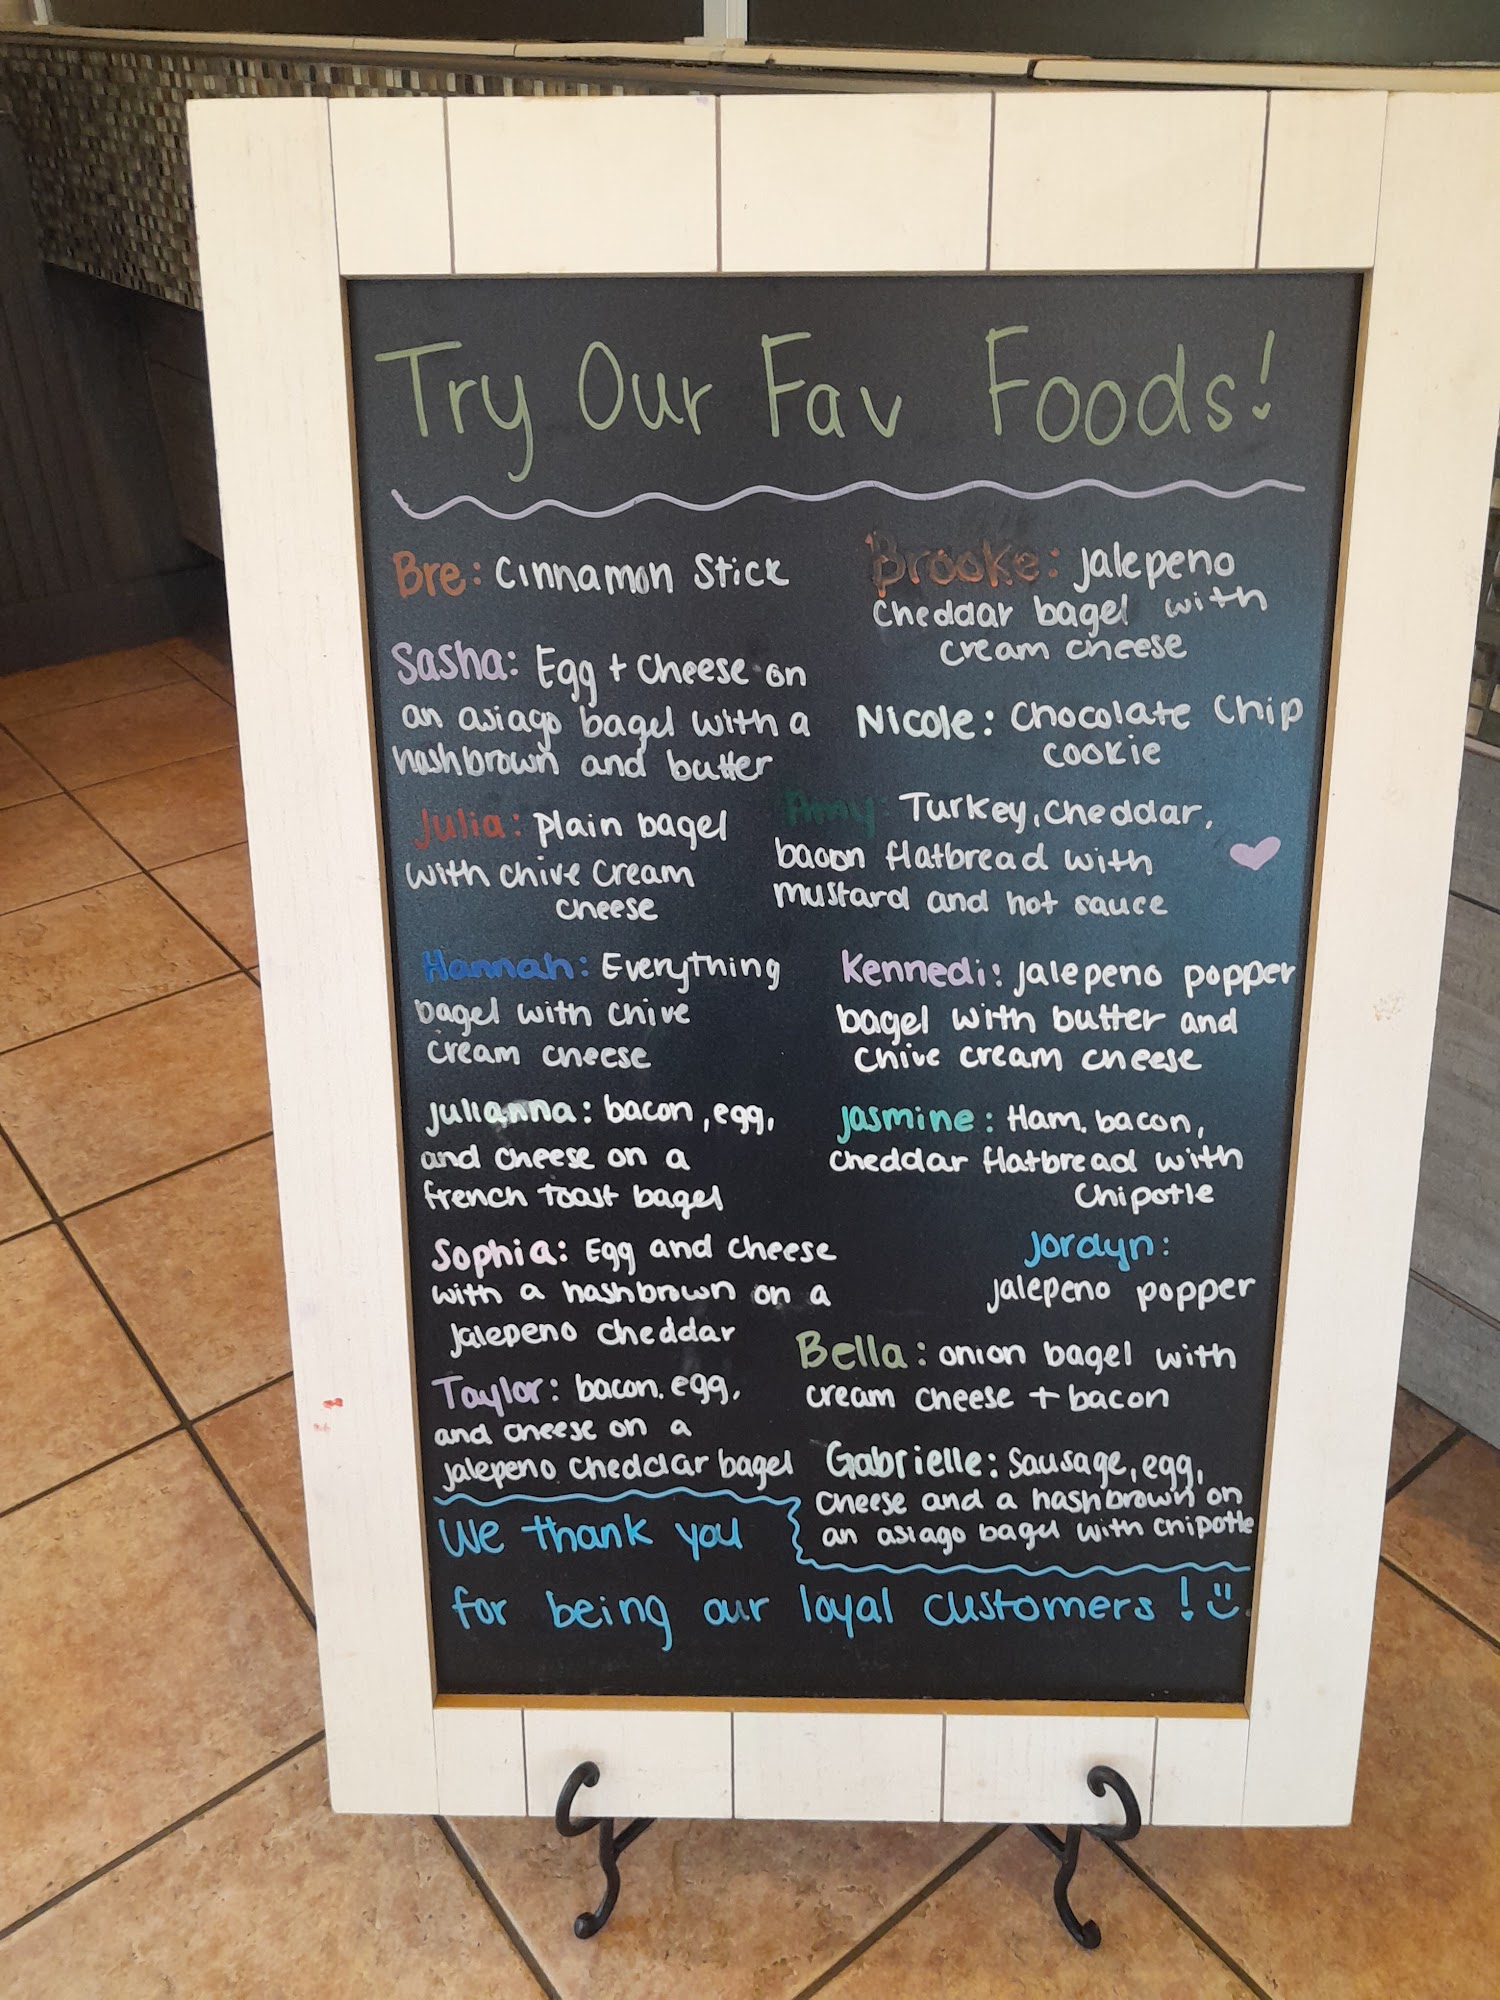 Try Our Fav Foods!
Bre: Cinnamon Stick
Sasha: Egg + Cheese on
an asiago bagel with a
hashbrown and butter
Julia: plain bagel
with chive cream
cheese
Hannah: Everything
bagel with chive
cream cheese
Julianna: bacon, egg,
and cheese on a
french toast bagel
Sophia: Egg and cheese
with a hashbrown on a
jalepeno cheddar
Taylor: bacon, egg,
and cheese on a
jalepeno cheddar bagel
Brooke: jalepeno
cheddar bagel with
cream cheese
Nicole: Chocolate Chip
cookie
Amy: Turkey, cheddar,
bacon flatbread with
mustard and hot sauce
Kennedi: jalepeno popper
bagel with butter and
chive cream cheese
Jasmine: Ham, bacon,
cheddar flatbread with
chipotle
Jordyn:
jalepeno popper
Bella: onion bagel with
cream cheese + bacon
Gabrielle: Sausage, egg,
cheese and a hashbrown on
an asiago bagel with chipotle
We thank you
for being our loyal customers!